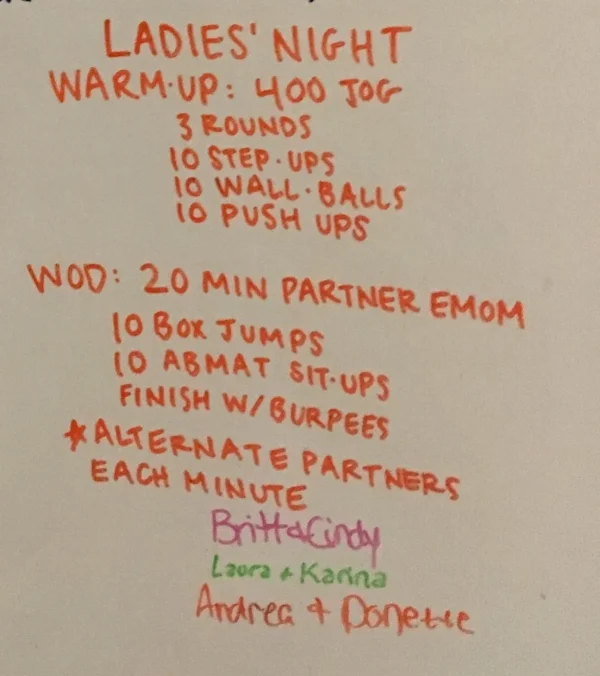 LADIES' NIGHT
WARM-UP: 400 JOG
3 ROUNDS
10 STEP-UPS
10 WALL-BALLS
10 PUSH UPS
WOD: 20 MIN PARTNER EMOM
10 BOX JUMPS
10 ABMAT SIT-UPS
FINISH W/BURPEES
*ALTERNATE PARTNERS
EACH MINUTE
Britt & Cindy
Laura + Karina
Andrea + Donette